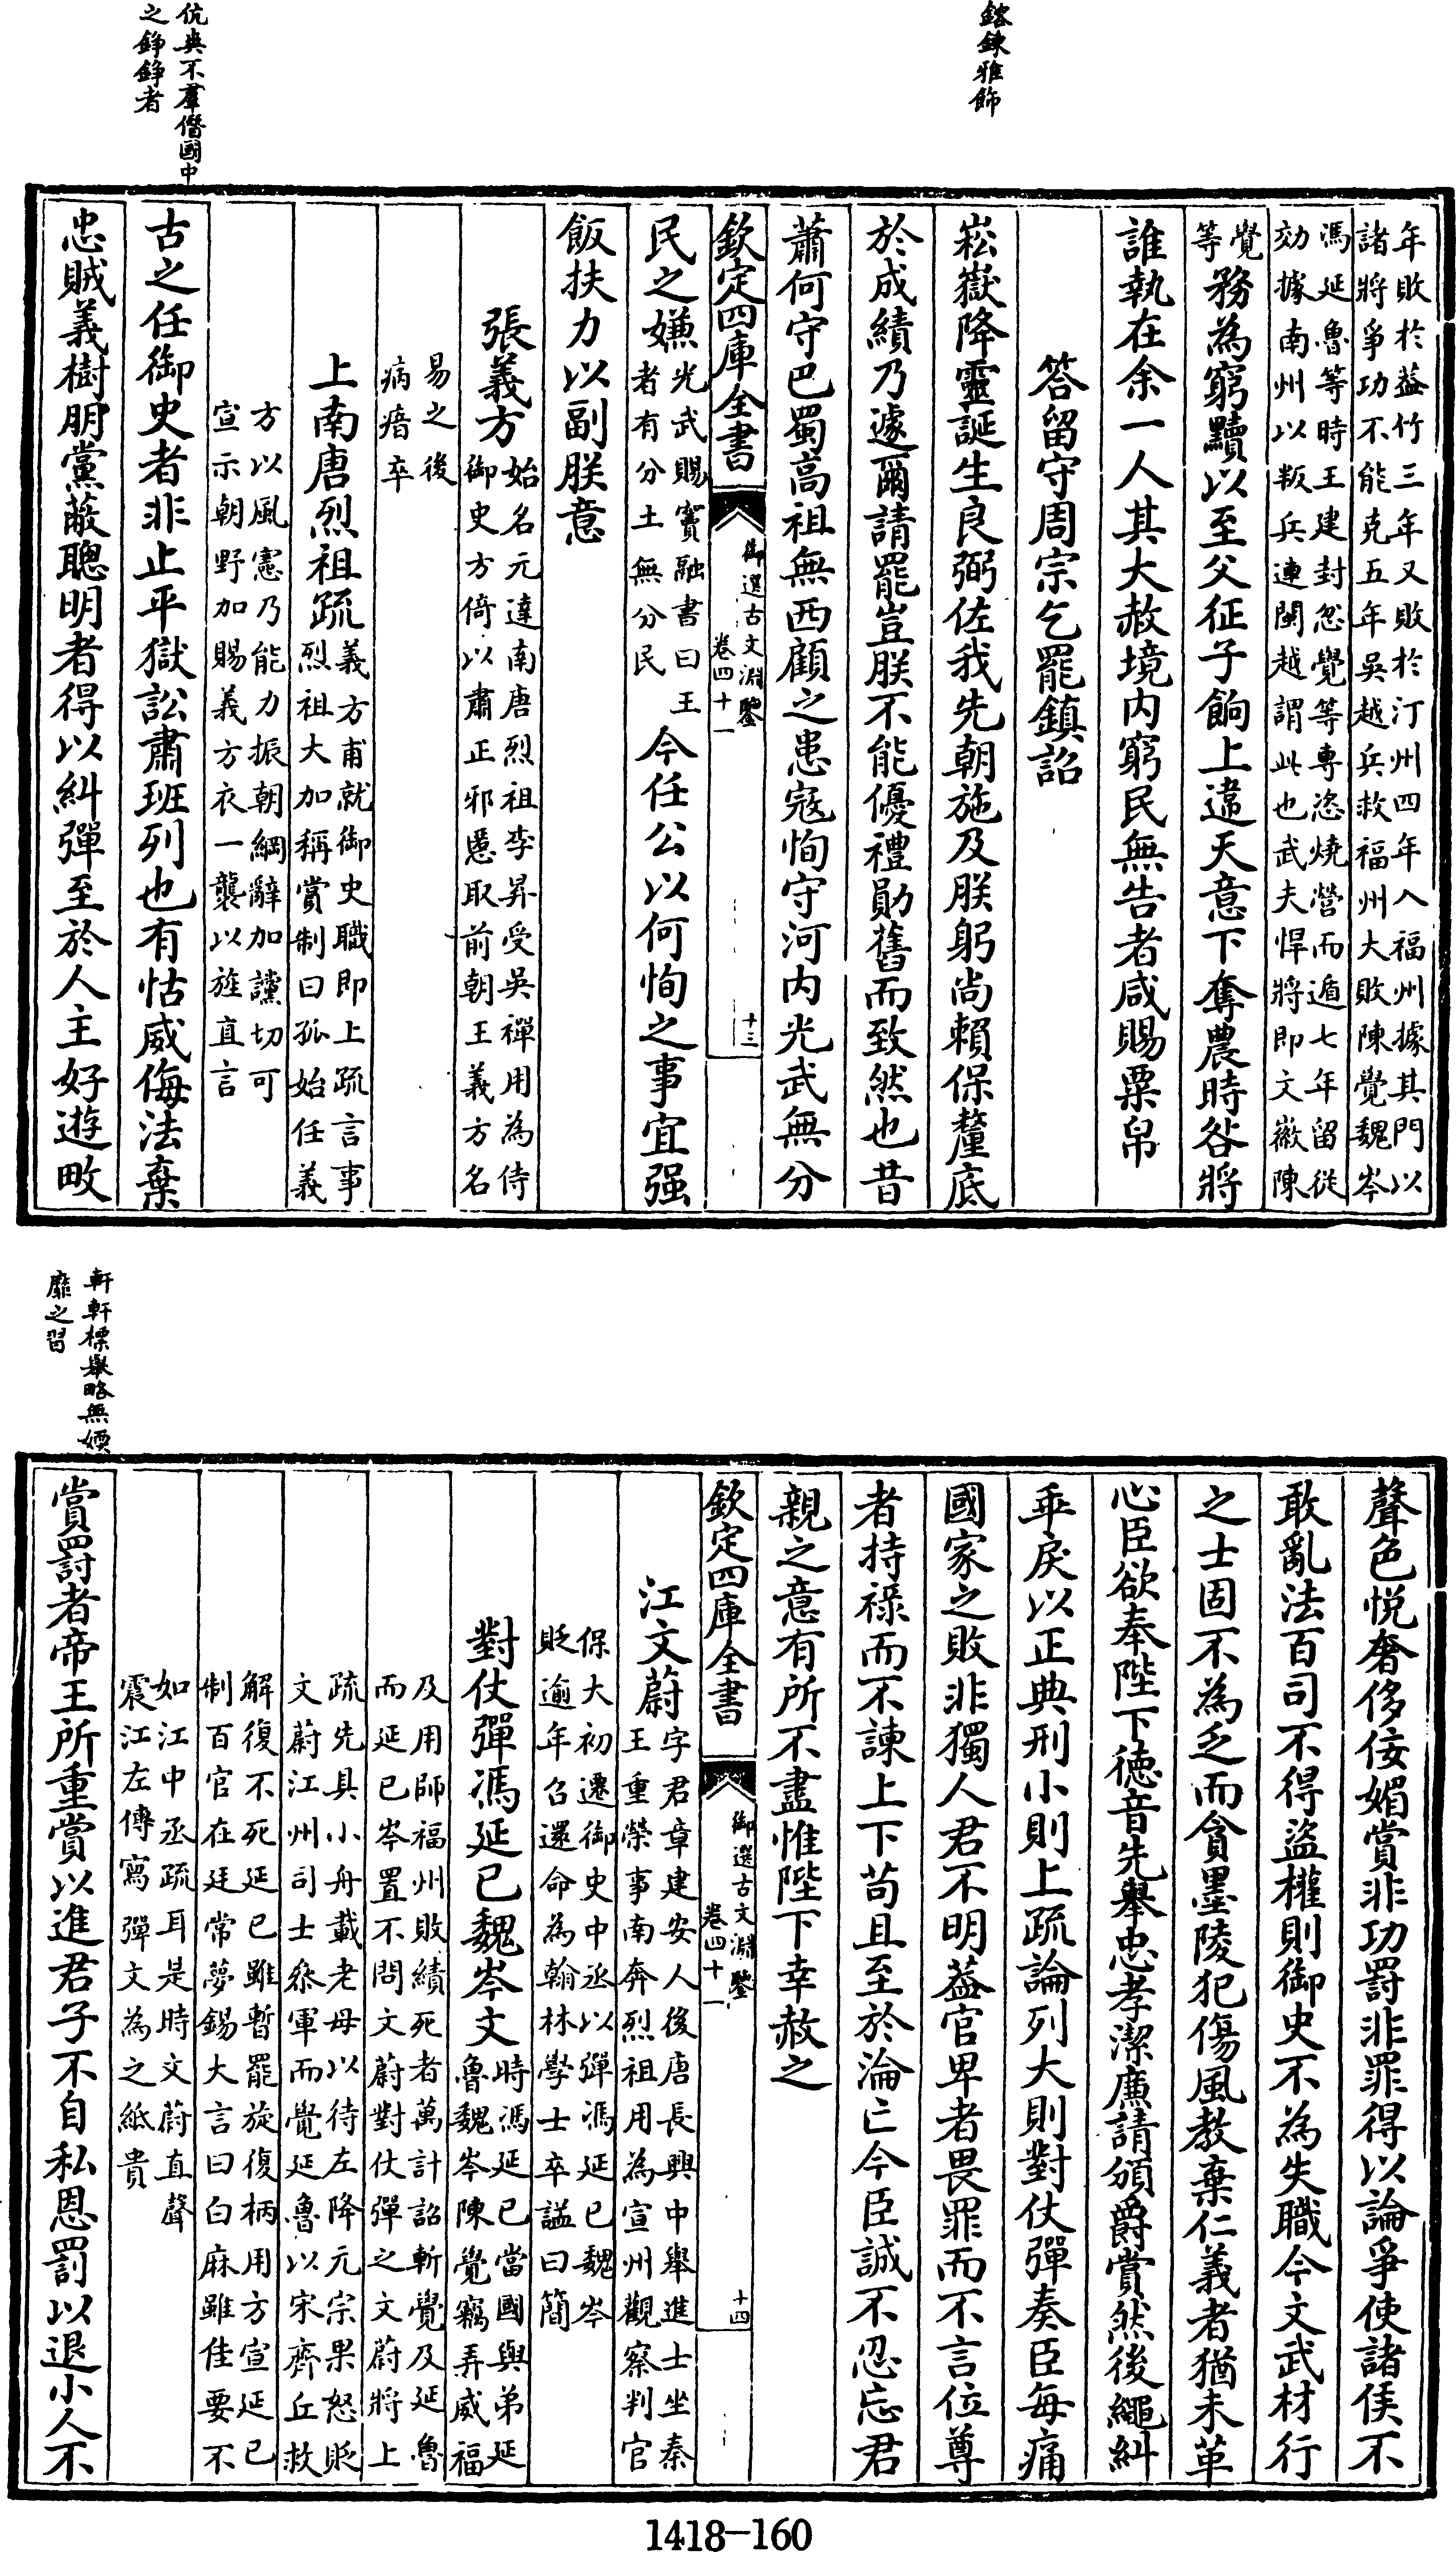 鎔鍊雅飾
伉爽不羣僭國中
之錚錚者
年敗於益竹三年又敗於汀州四年入福州據其門以
諸將爭功不能克五年吳越兵救福州大敗陳覺魏岑
馮延魯等時王建封忽覺等專恣燒營而遁七年留從
効據南州以叛兵連閩越謂此也武夫悍將即文徽陳
覺
等務為窮黷以至父征子餉上違天意下奪農時咎將
誰執在余一人其大赦境內窮民無告者咸賜粟帛
答留守周宗乞罷鎮詔
崧嶽降靈誕生良弼佐我先朝施及朕躬尚賴保釐底
於成績乃遽爾請罷豈朕不能優禮勛舊而致然也昔
蕭何守巴蜀高祖無西顧之患寇恂守河內光武無分
欽定四庫全書
御選古文淵鑒
卷四十一
十三
民之嫌光武賜竇融書曰王
者有分土無分民今任公以何恂之事宜强
飯扶力以副朕意
張義方始名元達南唐烈祖李昪受吳禪用為侍
御史方倚以肅正邪慝取前朝王義方名
易之後
病瘖卒
上南唐烈祖疏義方甫就御史職即上疏言事
烈祖大加稱賞制曰孤始任義
方以風憲乃能力振朝綱辭加讜切可
宣示朝野加賜義方衣一襲以旌直言
古之任御史者非止平獄訟肅班列也有怙威侮法棄
忠賊義樹朋黨蔽聰明者得以糾彈至於人主好遊畋
軒軒標舉略無媕
靡之習
聲色悅奢侈佞媚賞非功罰非罪得以論爭使諸侯不
敢亂法百司不得盜權則御史不為失職今文武材行
之士固不為乏而貪墨陵犯傷風教棄仁義者猶未革
心臣欲奉陛下德音先舉忠孝潔廉請頒爵賞然後繩糾
乖戾以正典刑小則上疏論列大則對仗彈奏臣每痛
國家之敗非獨人君不明蓋官卑者畏罪而不言位尊
者持祿而不諫上下苟且至於淪亡今臣誠不忍忘君
親之意有所不盡惟陛下幸赦之
欽定四庫全書
御選古文淵鑒
卷四十一
十四
江文蔚字君章建安人後唐長興中舉進士坐秦
王重榮事南奔烈祖用為宣州觀察判官
保大初遷御史中丞以彈馮延巳魏岑
貶逾年召還命為翰林學士卒諡曰簡
對仗彈馮延巳魏岑文時馮延巳當國與弟延
魯魏岑陳覺竊弄威福
及用師福州敗績死者萬計詔斬覺及延魯
而延巳岑置不問文蔚對仗彈之文蔚將上
疏先具小舟載老母以待左降元宗果怒貶
文蔚江州司士叅軍而覺延魯以宋齊丘救
解復不死延巳雖暫罷旋復柄用方宣延巳
制百官在廷常夢錫大言曰白麻雖佳要不
如江中丞疏耳是時文蔚直聲
震江左傳寫彈文為之紙貴
賞罰者帝王所重賞以進君子不自私恩罰以退小人不
1418-160